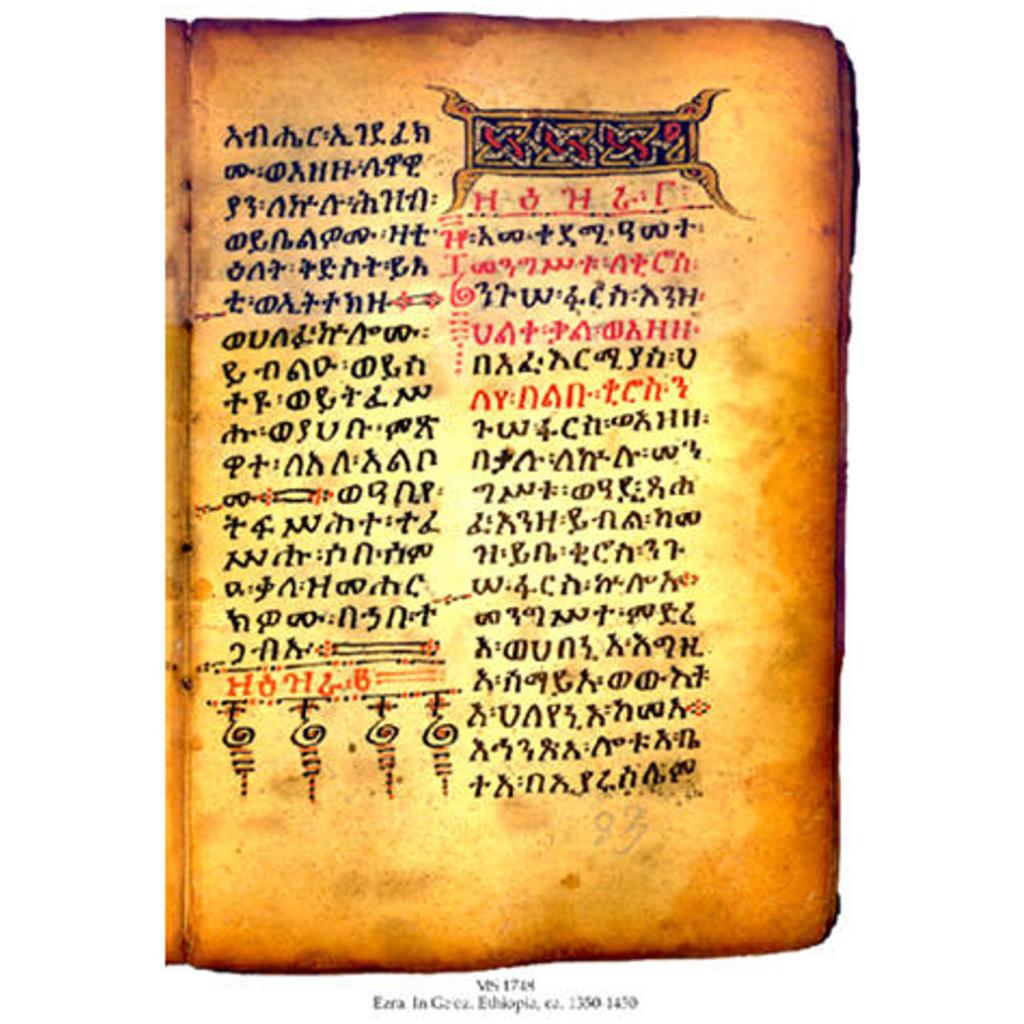 እብሔር፡ኢገደፈክ
ሙ፡ወአዘዙ፡ሌዋዊ
ያን፡ለኵሉ፡ሕዝብ፡
ወይቤልዎሙ፡ዛቲ
ዕለት፡ቅድስት፡ይእ
ቲ፡ወኢትትክዙ
ወሀለፉ፡ኵሎሙ፡
ይብልዑ፡ወይስ
ተዩ፡ወይትፈሥ
ሑ፡ወያሀቡ፡ምጽ
ዋተ፡ለእለ፡አልቦ
ሙ፡ወዓቢየ፡
ትፍሥሕተ፡ተፈ
ሥሑ፡ሶበ፡ሰም
ዑ፡ቃለ፡ዝመሐር
ክዎሙ፡በኃበ፡ተ
ጋብኡ
ዘዕዝራ፡፪
ዘዕዝራ፡፫
አመ፡ቀዳሚ፡ዓመት፡
መንግሥቱ፡ለቂሮስ፡
ንጉሠ፡ፋርስ፡እንዘ፡
ሀልቀ፡ቃል፡ወአዘዘ፡
በአፈ፡ኤርሚያስ፡ሀ
ለየ፡በልቡ፡ቂሮስ፡ን
ጉሠ፡ፋርስ፡ወአዘዘ፡
በቃሉ፡ለኵሉ፡መን
ግሥቱ፡ወዓዲ፡ጸሐ
ፈ፡እንዘ፡ይብል፡ከመ
ዝ፡ይቤ፡ቂሮስ፡ንጉ
ሠ፡ፋርስ፡ኵሎ
መንግሥተ፡ምድረ
ወሀበኒ፡እግዚ
አ፡ሰማይ፡ወውእቱ
ሀለየኒ፡ከመ
እሕንጽ፡ሎቱ፡ቤ
ተ፡በኢየሩስሌም
83
MS 1748
Ezra. In Ge'ez. Ethiopia, ca. 1350-1450